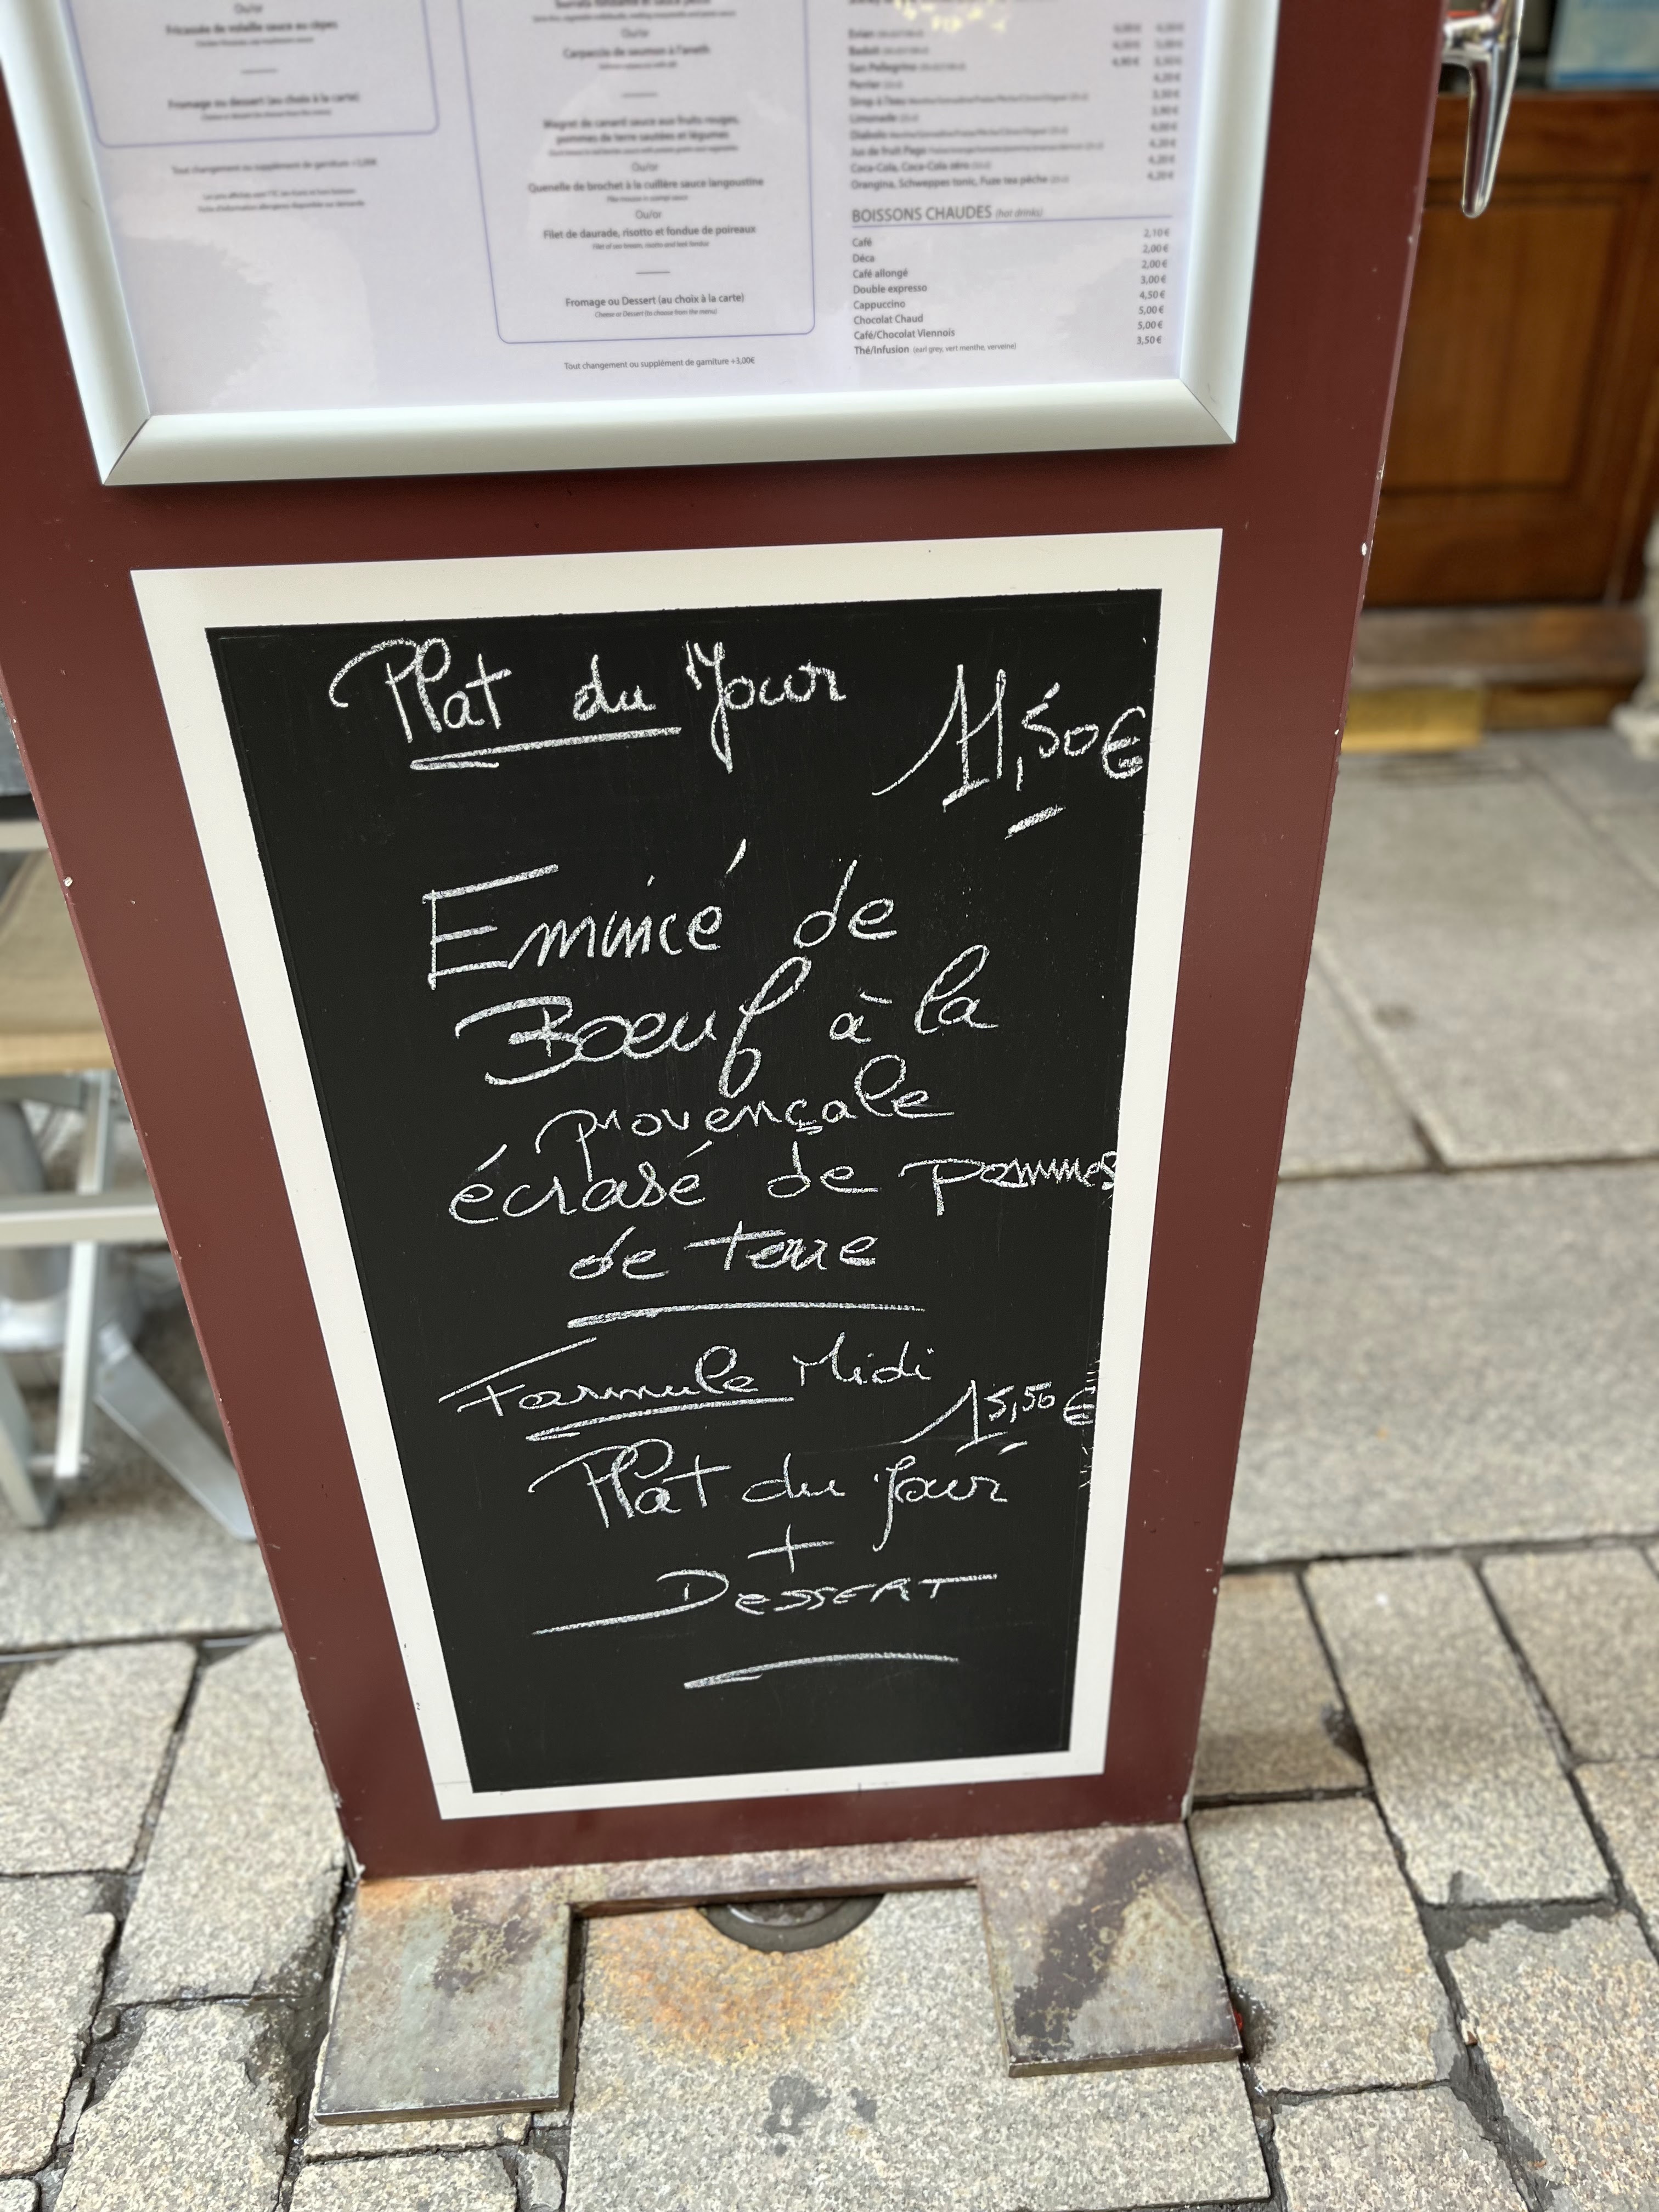 Ou/or
Fricassée de volaille sauce au cèpes
Fromage ou dessert (au choix à la carte)
Tout changement ou supplément de garniture +3,00€
Ou/or
Carpaccio de saumon à l'aneth
Magret de canard sauce aux fruits rouges,
pommes de terre sautées et légumes
Ou/or
Quenelle de brochet à la cuillère sauce langoustine
Ou/or
Filet de daurade, risotto et fondue de poireaux
Filet of sea bream, risotto and leek fondue
Fromage ou Dessert (au choix à la carte)
Cheese or Dessert (to choose from the menu)
Tout changement ou supplément de garniture +3,00€
Evian
Badoit
San Pellegrino
Perrier
Sirop à l'eau
Limonade
Diabolo
Jus de fruit Pago
Coca-Cola, Coca-Cola zéro 4,20€
Orangina, Schweppes tonic, Fuze tea pêche 4,20€
BOISSONS CHAUDES (hot drinks)
2,10€
Café 2,00€
Déca 2,00€
Café allongé 3,00€
Double expresso 4,50€
Cappuccino 5,00€
Chocolat Chaud 5,00€
Café/Chocolat Viennois 3,50€
Thé/Infusion (earl grey, vert menthe, verveine)
Plat du Jour
11,50€
Emincé de
Boeuf à la
provençale
écrasé de pommes
de terre
Formule Midi
15,50€
Plat du jour
+
DeSSERT